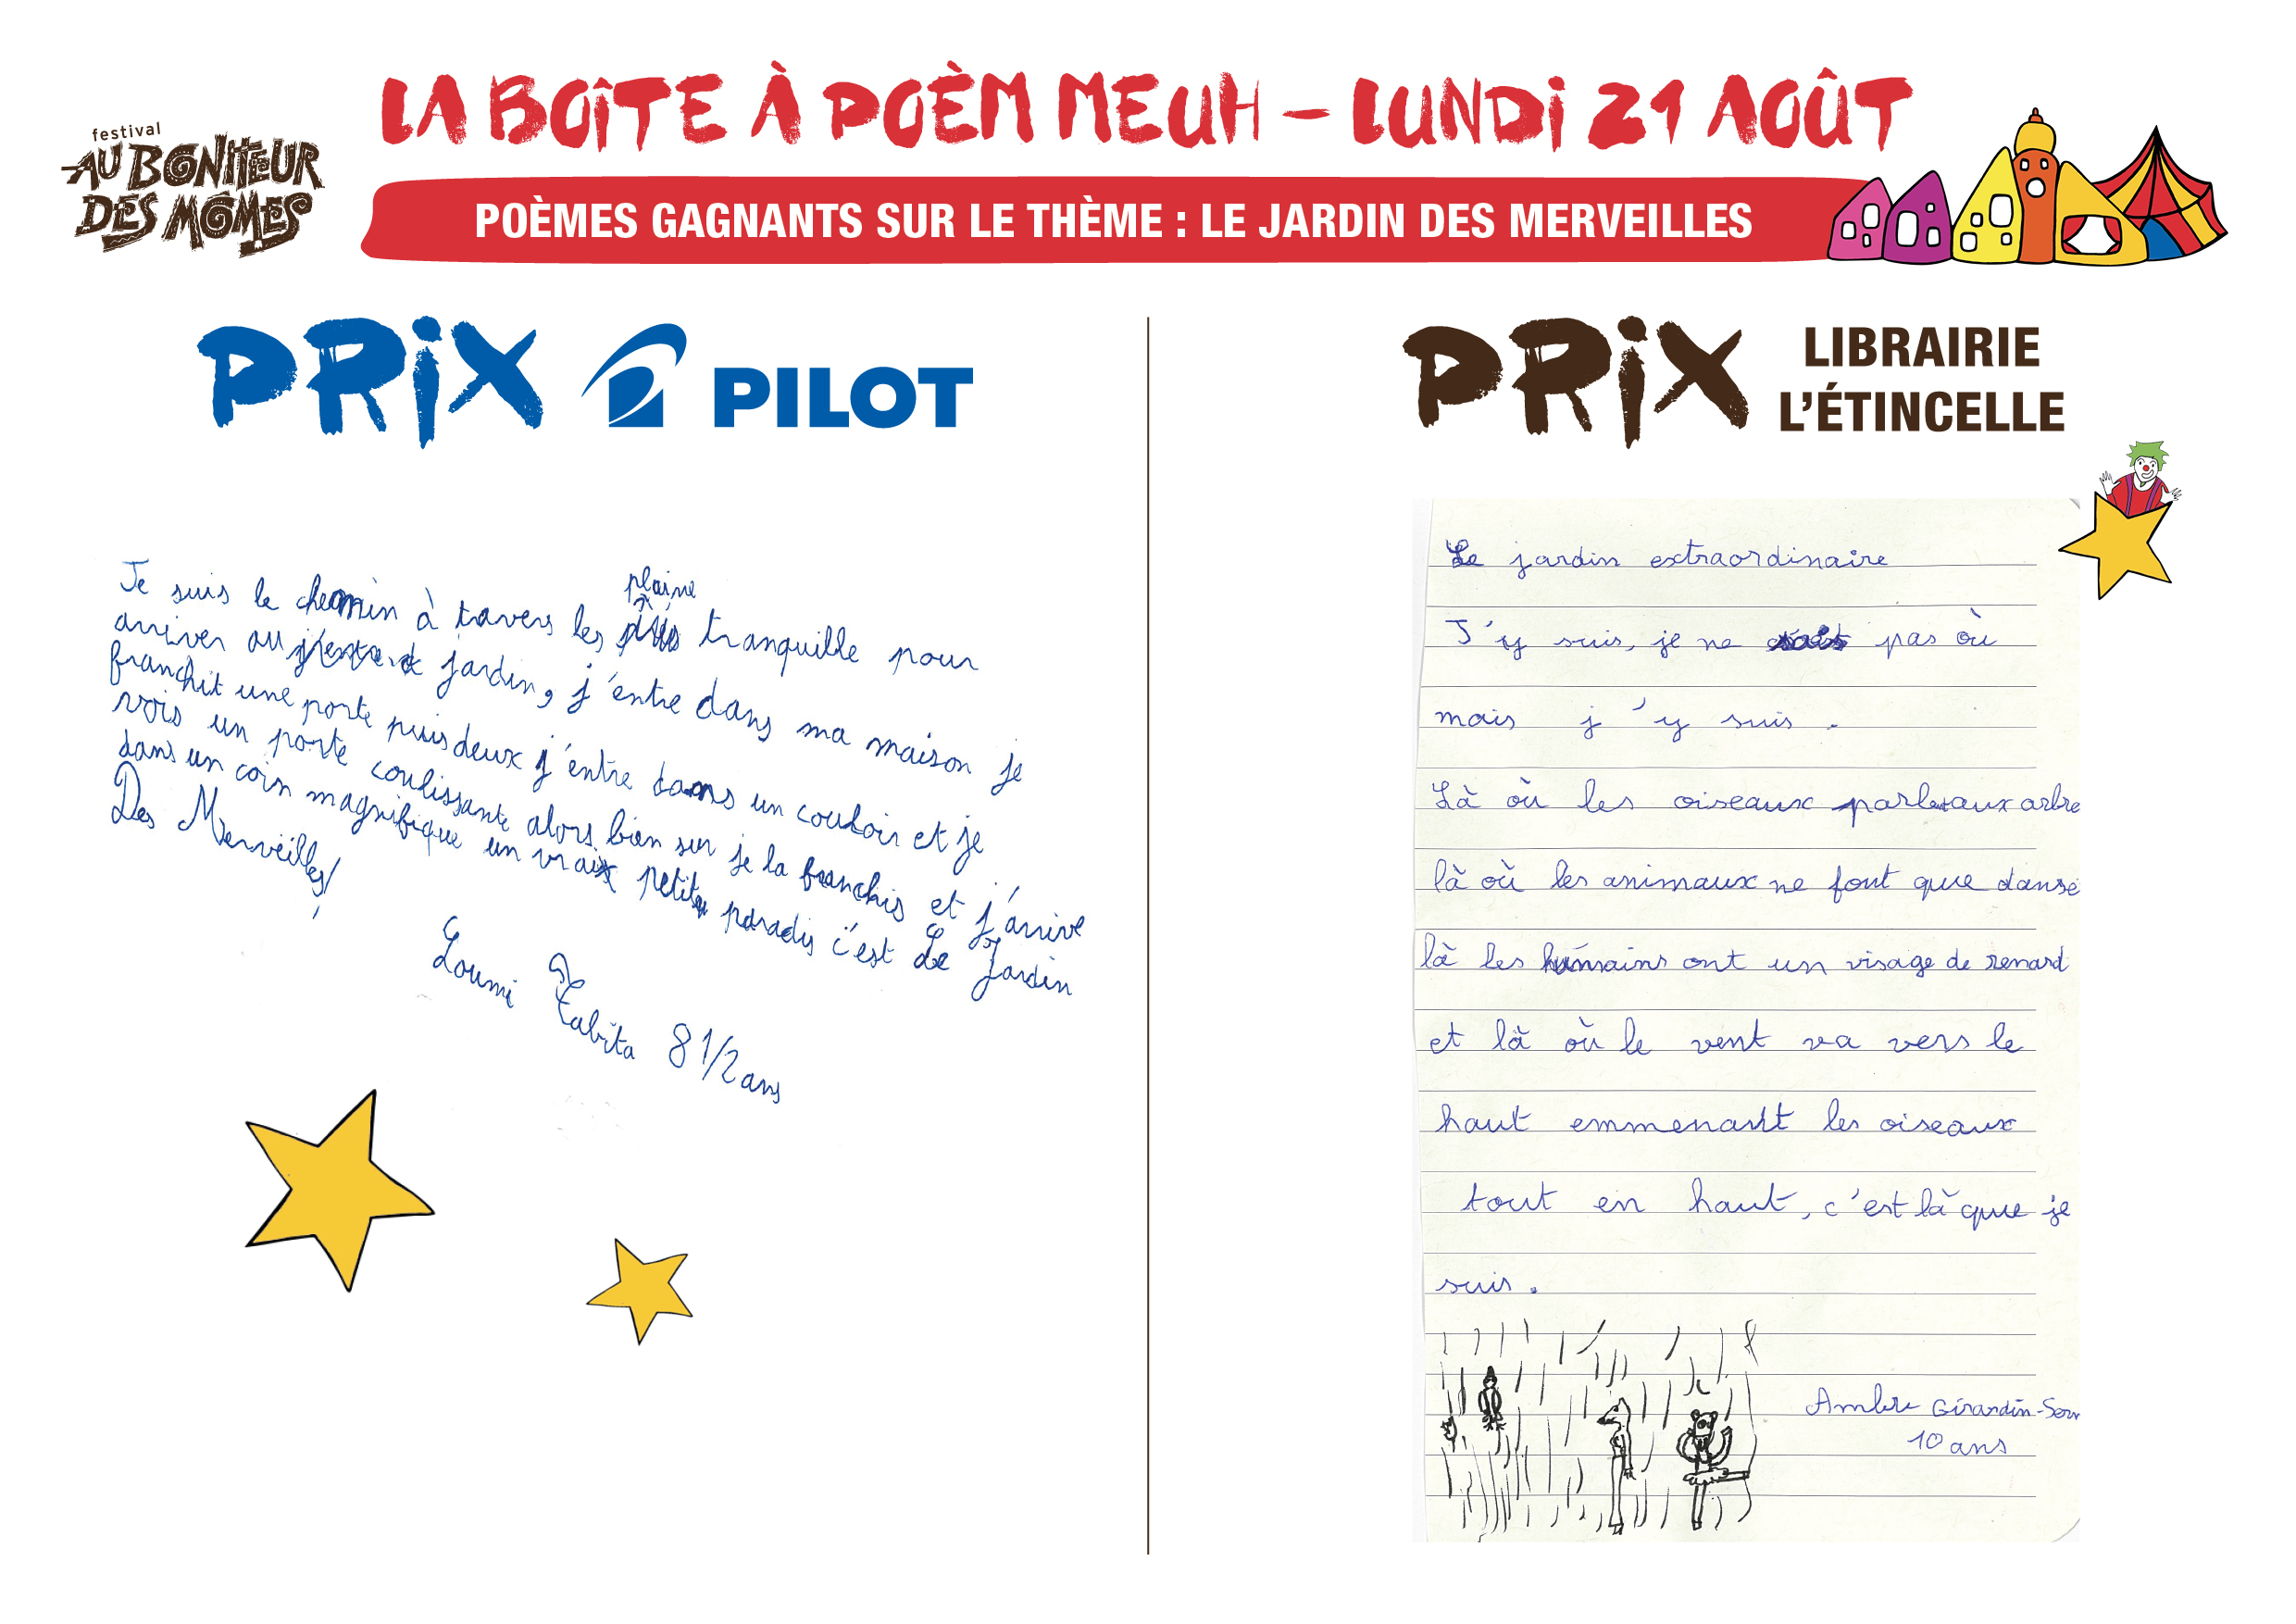 LA BOÎTE À POÈM MEUH – LUNDI 21 AOÛT
festival
AU BONHEUR
DES MÔMES
POÈMES GAGNANTS SUR LE THÈME : LE JARDIN DES MERVEILLES
PRIX PILOT
Je suis le chemin à travers les plaine tranquille pour
arriver au jardin, j'entre dans ma maison je
franchit une porte puis deux j'entre dans un couloir et je
vois un porte coulissante alors bien sur je la franchis et j'arrive
dans un coin magnifique un vrai petit paradis c'est Le Jardin
Des Merveilles!
Loumi Tabita 8 1/2 ans
PRIX LIBRAIRIE
L'ÉTINCELLE
Le jardin extraordinaire
J'y suis, je ne sais pas où
mais j'y suis.
Là où les oiseaux parle aux arbre
là où les animaux ne font que danse
là les humains ont un visage de renard
et là où le vent va vers le
haut emmenant les oiseaux
tout en haut, c'est là que je
suis.
Ambre Girardin-Serv
10 ans